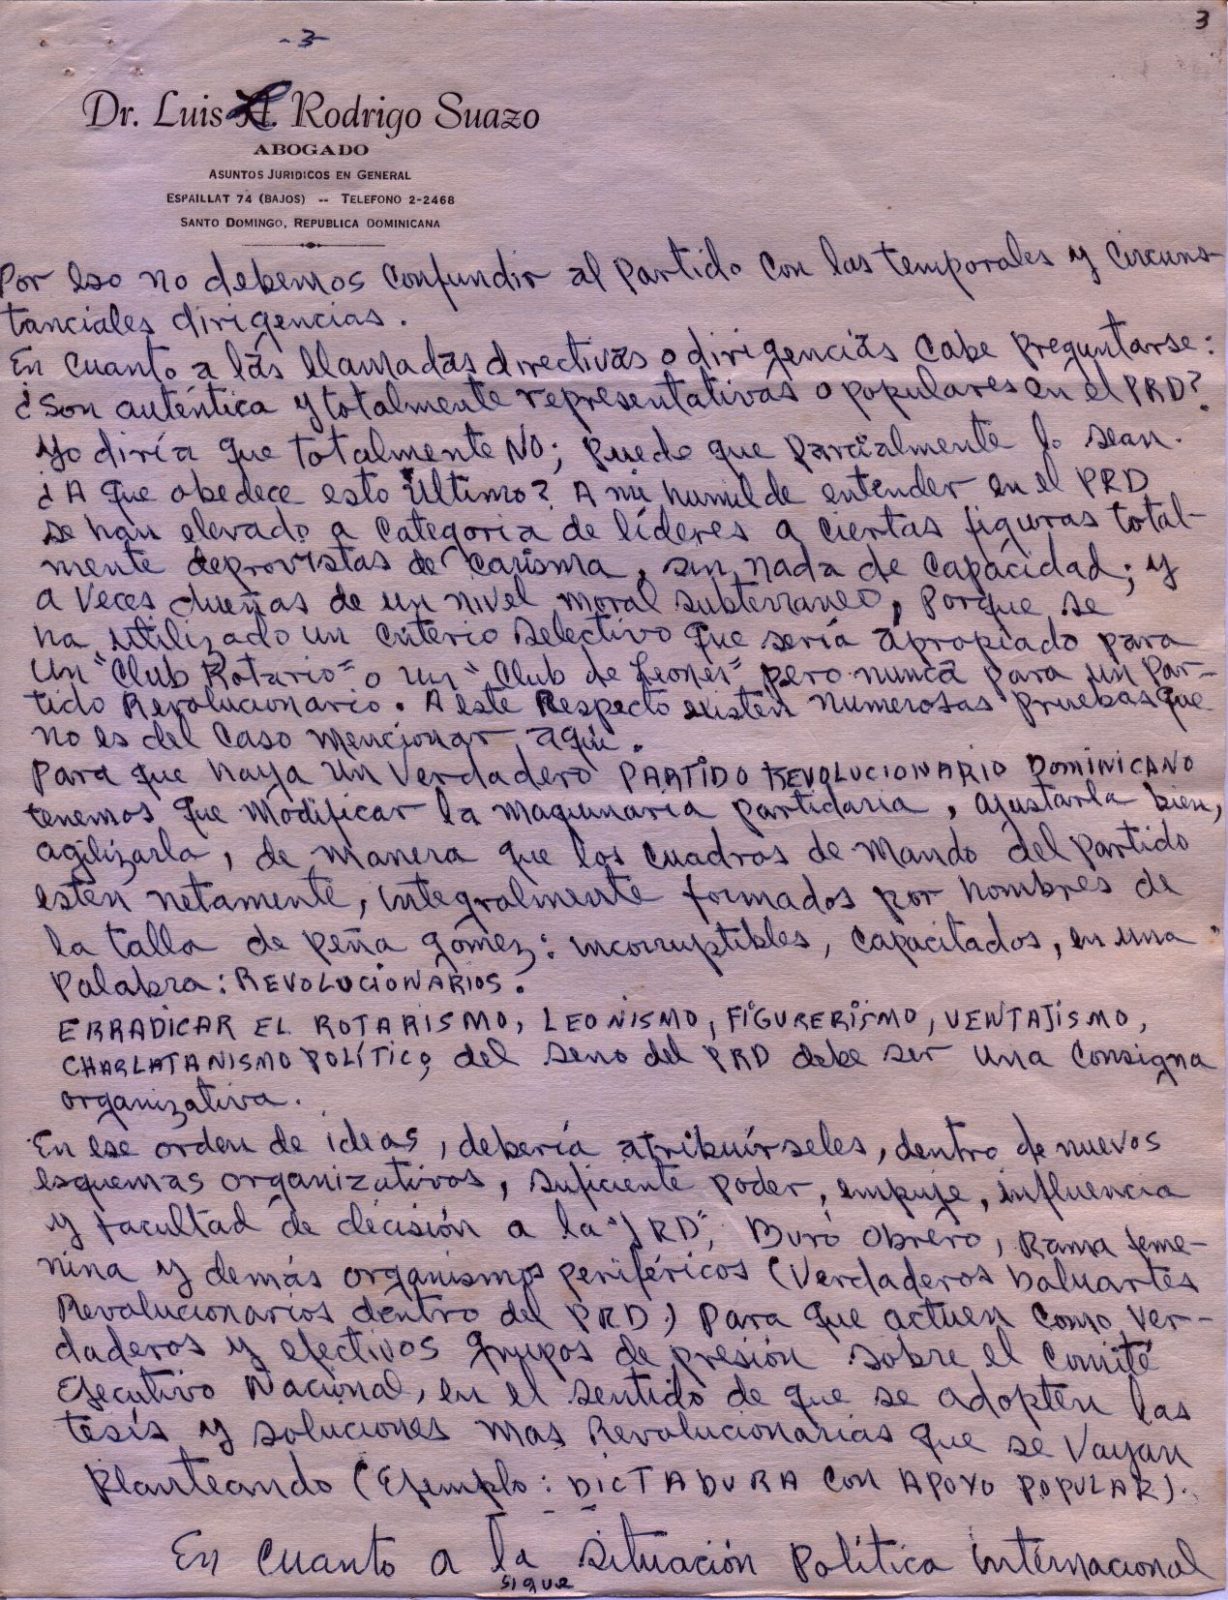 3
-3-
Dr. Luis A. Rodrigo Suazo
ABOGADO
ASUNTOS JURIDICOS EN GENERAL
ESPAILLAT 74 (BAJOS) -- TELEFONO 2-2468
SANTO DOMINGO, REPUBLICA DOMINICANA
Por eso no debemos confundir al partido con las temporales y circuns-
tanciales dirigencias.
En cuanto a las llamadas directivas o dirigencias cabe preguntarse:
¿Son auténtica y totalmente representativas o populares en el PRD?
Yo diría que totalmente NO; puede que parcialmente lo sean.
¿A que obedece esto último? A mi humilde entender en el PRD
se han elevado a categoria de líderes a ciertas figuras total-
mente deprovistas de carisma, sin nada de capacidad; y
a veces dueñas de un nivel moral subterraneo, porque se
ha utilizado un criterio selectivo que sería apropiado para
un "Club Rotario" o un "Club de Leones" pero nunca para un Par-
tido Revolucionario. A este Respecto existen numerosas pruebas que
no es del caso mencionar aquí.
Para que haya un verdadero PARTIDO REVOLUCIONARIO DOMINICANO
tenemos que modificar la maquinaria partidaria, ajustarla bien,
agilizarla, de manera que los cuadros de mando del partido
estén netamente, integralmente formados por hombres de
la talla de Peña Gómez: incorruptibles, capacitados, en una
Palabra: REVOLUCIONARIOS.
ERRADICAR EL ROTARISMO, LEONISMO, FIGURERISMO, VENTAJISMO,
CHARLATANISMO POLÍTICO, del seno del PRD debe ser una consigna
organizativa.
En ese orden de ideas, debería atribuírseles, dentro de nuevos
esquemas organizativos, suficiente poder, empuje, influencia
y facultad de decisión a la "JRD", Buró Obrero, Rama feme-
nina y demás organismos periféricos (Verdaderos baluartes
Revolucionarios dentro del PRD) para que actuen como ver-
daderos y efectivos grupos de presión sobre el Comité
Ejecutivo Nacional, en el sentido de que se adopten las
tesis y soluciones mas Revolucionarias que se vayan
Planteando (Ejemplo: DICTADURA CON APOYO POPULAR).
En cuanto a la situación política internacional
sigue